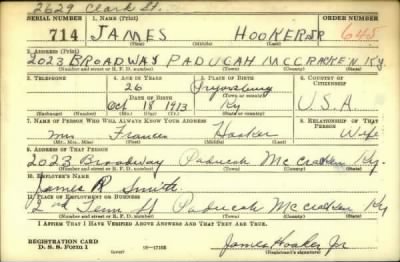 2629 Clark St.
SERIAL NUMBER 1. NAME (Print) ORDER NUMBER
714 JAMES HOOKER JR 645
(First) (Middle) (Last)
2. ADDRESS (Print)
2023 BROADWAY PADUCAH MCCRACKEN KY.
(Number and street or R. F. D. number) (Town) (County) (State)
3. TELEPHONE 4. AGE IN YEARS 5. PLACE OF BIRTH 6. COUNTRY OF CITIZENSHIP
26
DATE OF BIRTH (Town or county)
Oct 18 1913 Ky U.S.A.
(Exchange) (Number) (Mo.) (Day) (Yr.) (State or country)
7. NAME OF PERSON WHO WILL ALWAYS KNOW YOUR ADDRESS 8. RELATIONSHIP OF THAT PERSON
Mrs Frances Hooker Wife
(Mr., Mrs., Miss) (First) (Middle) (Last)
9. ADDRESS OF THAT PERSON
2023 Broadway Paducah McCracken Ky.
(Number and street or R. F. D. number) (Town) (County) (State)
10. EMPLOYER'S NAME
James R Smith
11. PLACE OF EMPLOYMENT OR BUSINESS
2nd Tenn St Paducah McCracken Ky
(Number and street or R. F. D. number) (Town) (County) (State)
I AFFIRM THAT I HAVE VERIFIED ABOVE ANSWERS AND THAT THEY ARE TRUE.
REGISTRATION CARD
D. S. S. Form 1 (over) 16—17105 James Hooker Jr
(Registrant's signature)